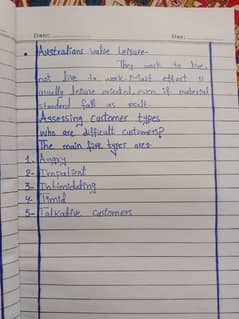 Date: Day:
• Australians value Leisure-
They work to live
not live to work. Most effort is
usually leisure oriented, even if material
standard fall as result.
Assessing customer types
who are difficult customers?
The main five types are.
1- Angry
2- Impatient
3- Intimidating
4- Timid
5- Talkative customers